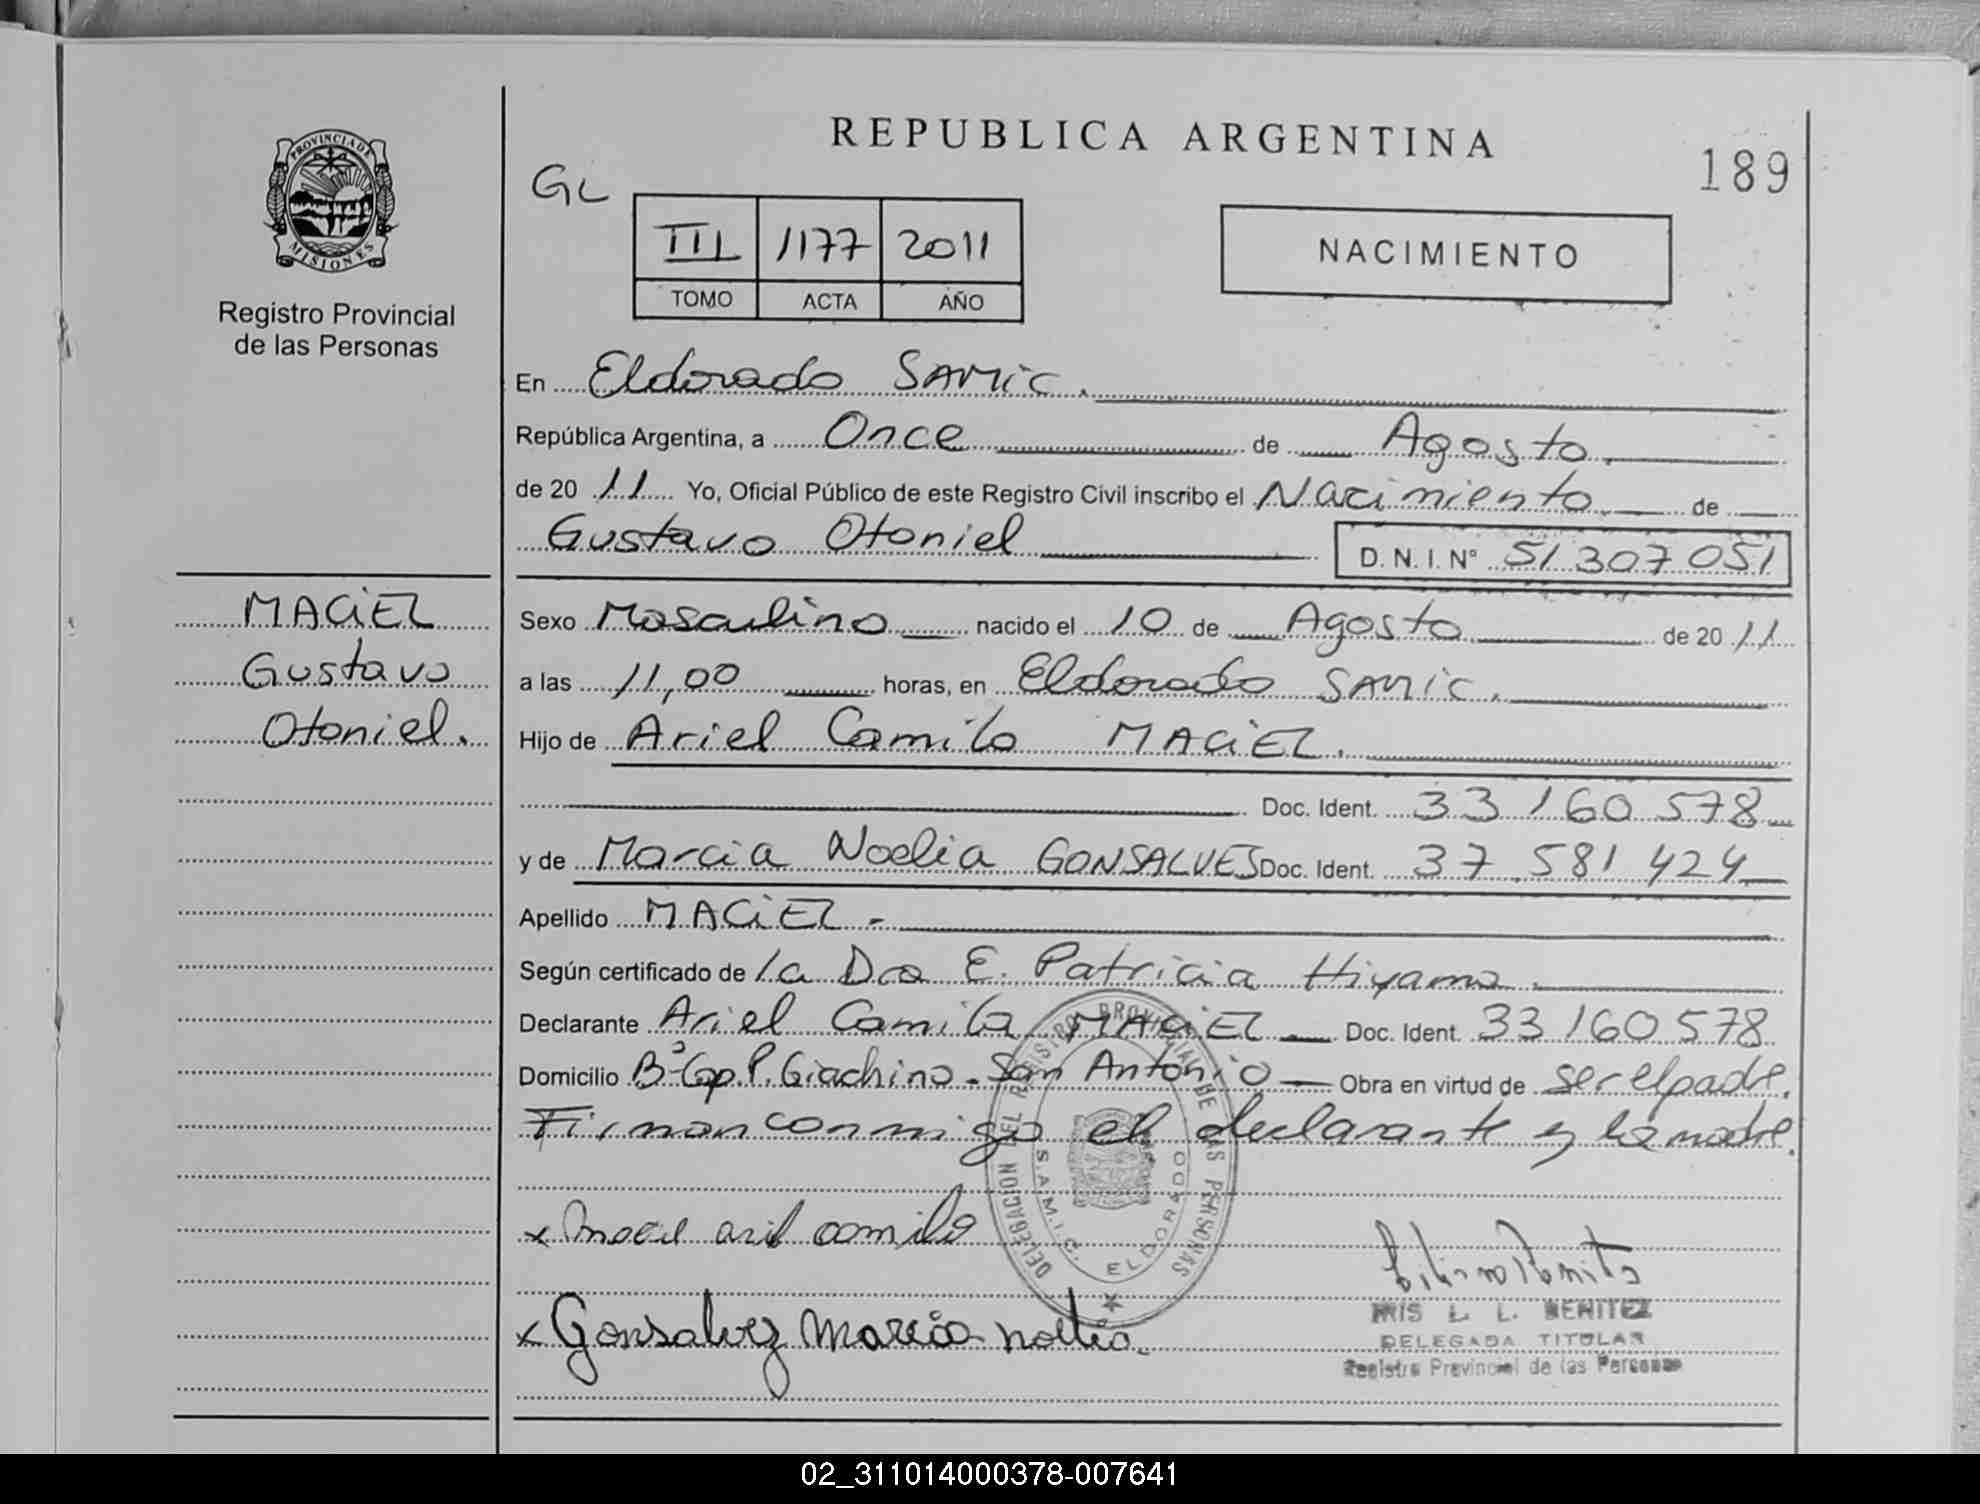 REPUBLICA ARGENTINA
189
GL
PROVINCIA DE
MISIONES
Registro Provincial
de las Personas
III 1177 2011
TOMO ACTA AÑO
NACIMIENTO
En Eldorado SAMiC.
República Argentina, a Once de Agosto.
de 20 11 Yo, Oficial Público de este Registro Civil inscribo el Nacimiento de
Gustavo Otoniel D.N.I.N° 51 307 051
MACiEL
Gustavo
Otoniel.
Sexo Masculino nacido el 10 de Agosto de 20 11
a las 11,00 horas, en Eldorado SAMiC.
Hijo de Ariel Camilo MACiEL.
Doc. Ident. 33 160 578
y de Marcia Noelia GONSALVES Doc. Ident. 37 581 424
Apellido MACiEL -
Según certificado de la Dra E. Patricia Hiyama.
Declarante Ariel Camilo MACiEL Doc. Ident. 33 160 578
Domicilio B° Cap. P. Giachino - San Antonio Obra en virtud de ser el padre.
Firman conmigo el declarante y la madre.
DELEGACION DEL REGISTRO PROVINCIAL DE LAS PERSONAS
S.A.M.I.C. ELDORADO
x camilo
x Gonsalvez Marcia noelia.
IRIS L. L. BENITEZ
DELEGADA TITULAR
Registro Provincial de las Personas
02_311014000378-007641